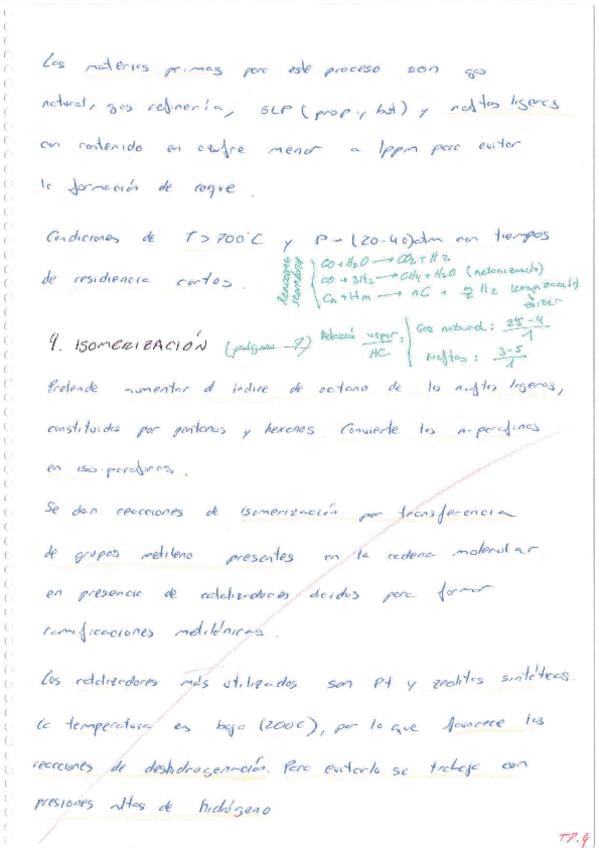 Las materias primas para este proceso son gas
natural, gas refinería, GLP (prop y but) y naftas ligeras
con contenido en azufre menor a 1ppm para evitar
la formación de coque.
Condiciones de T > 700°C y P ~ (20-40) atm con tiempos
de residencia cortos.
Reacciones
CO + H2O → CO2 + H2
CO + 3H2 → CH4 + H2O (metanización)
CnHm → nC + m/2 H2 (coquización)
evitar
9. ISOMERIZACIÓN
Relación vapor/HC:
Gas natural: 2,5-4/1
Naftas: 3-5/1
Pretende aumentar el índice de octano de las naftas ligeras,
constituidas por pentanos y hexanos. Convierte las n-parafinas
en iso-parafinas.
Se dan reacciones de isomerización por transferencia
de grupos metileno presentes en la cadena molecular
en presencia de catalizadores ácidos para formar
ramificaciones metilénicas.
Los catalizadores más utilizados son Pt y zeolitas sintéticas.
La temperatura es baja (200C), por lo que favorece las
reacciones de deshidrogenación. Para evitarlo se trabaja con
presiones altas de hidrógeno
T7.9